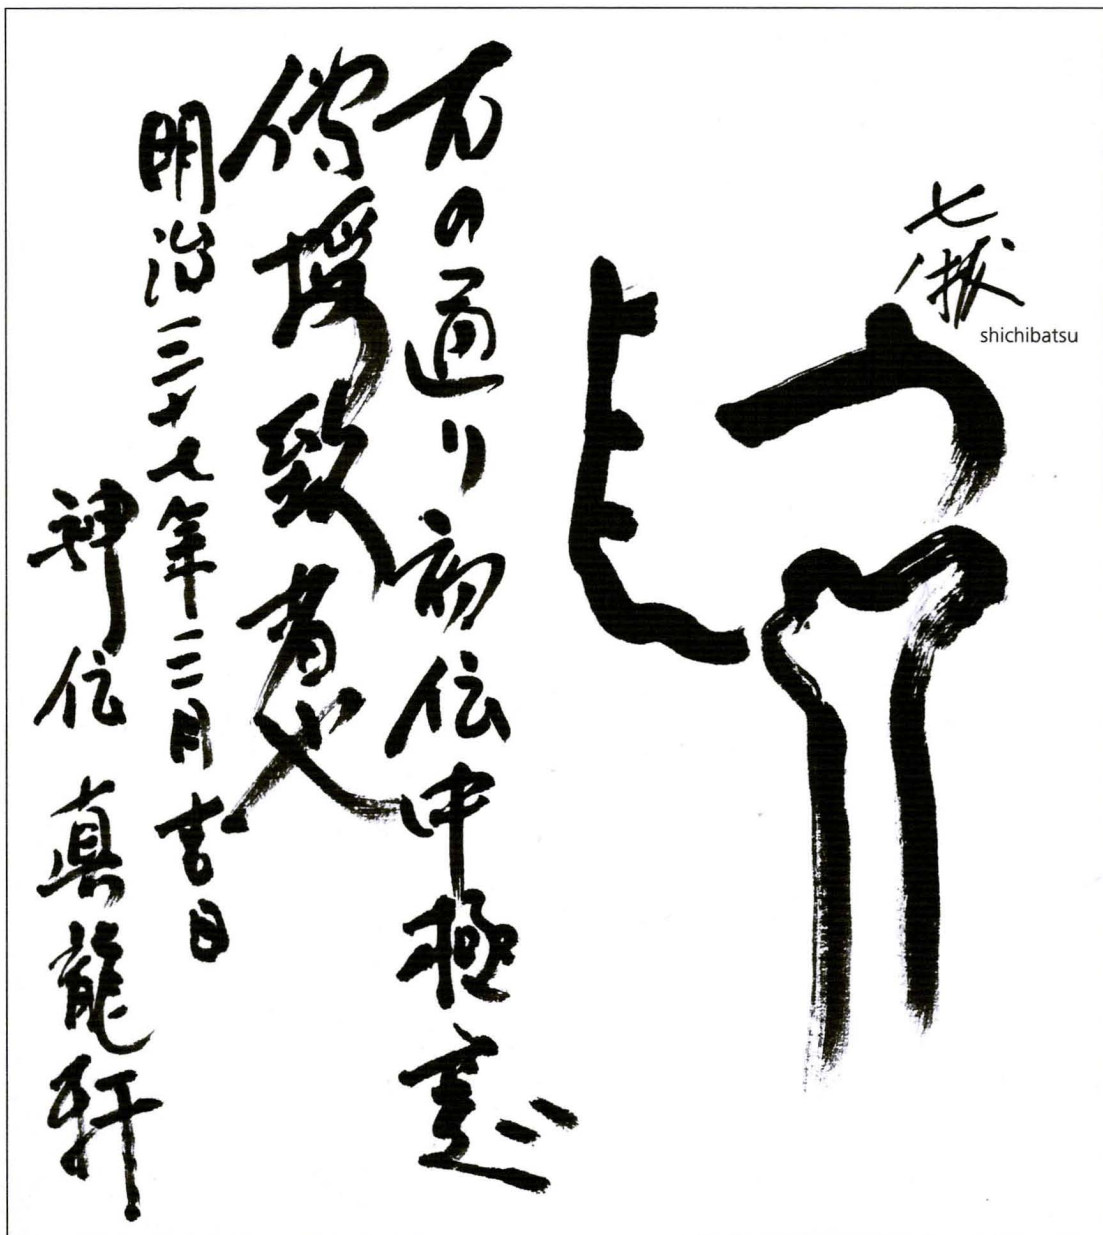 七
shichibatsu
右の通り初伝中極意
傳授致者也
明治三十七年二月吉日
神伝 真龍軒